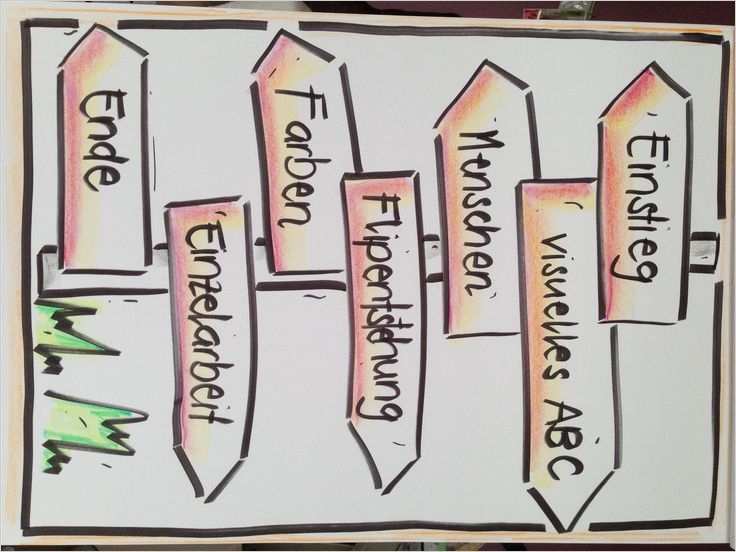 Einstieg
visuelles ABC
Menschen
Flipentstehung
Farben
Einzelarbeit
Ende